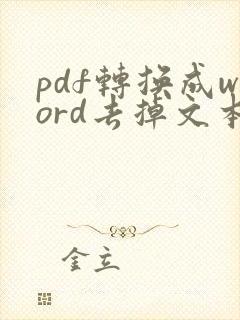 pdf轉換成w
ord去掉文本
金立